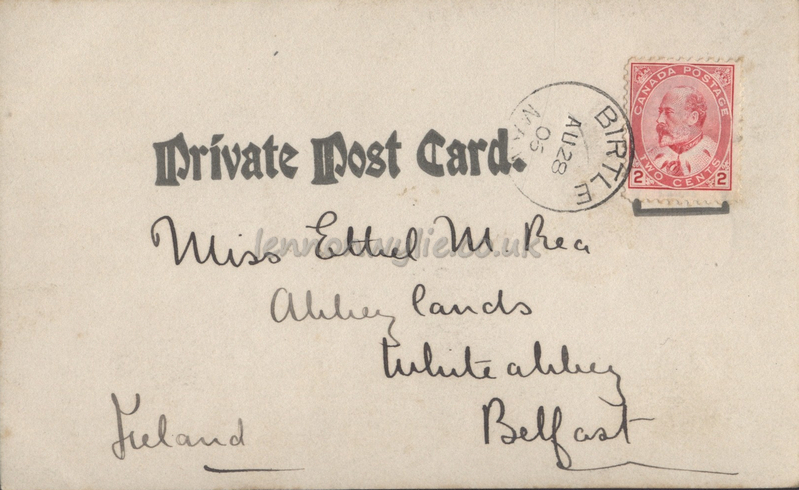 CANADA POSTAGE
2 TWO CENTS 2
BIRTLE
AU 28
05
MAN
Private Post Card.
Miss Ethel M Rea
lennonwylie.co.uk
Abbeylands
Whiteabbey
Belfast
Ireland